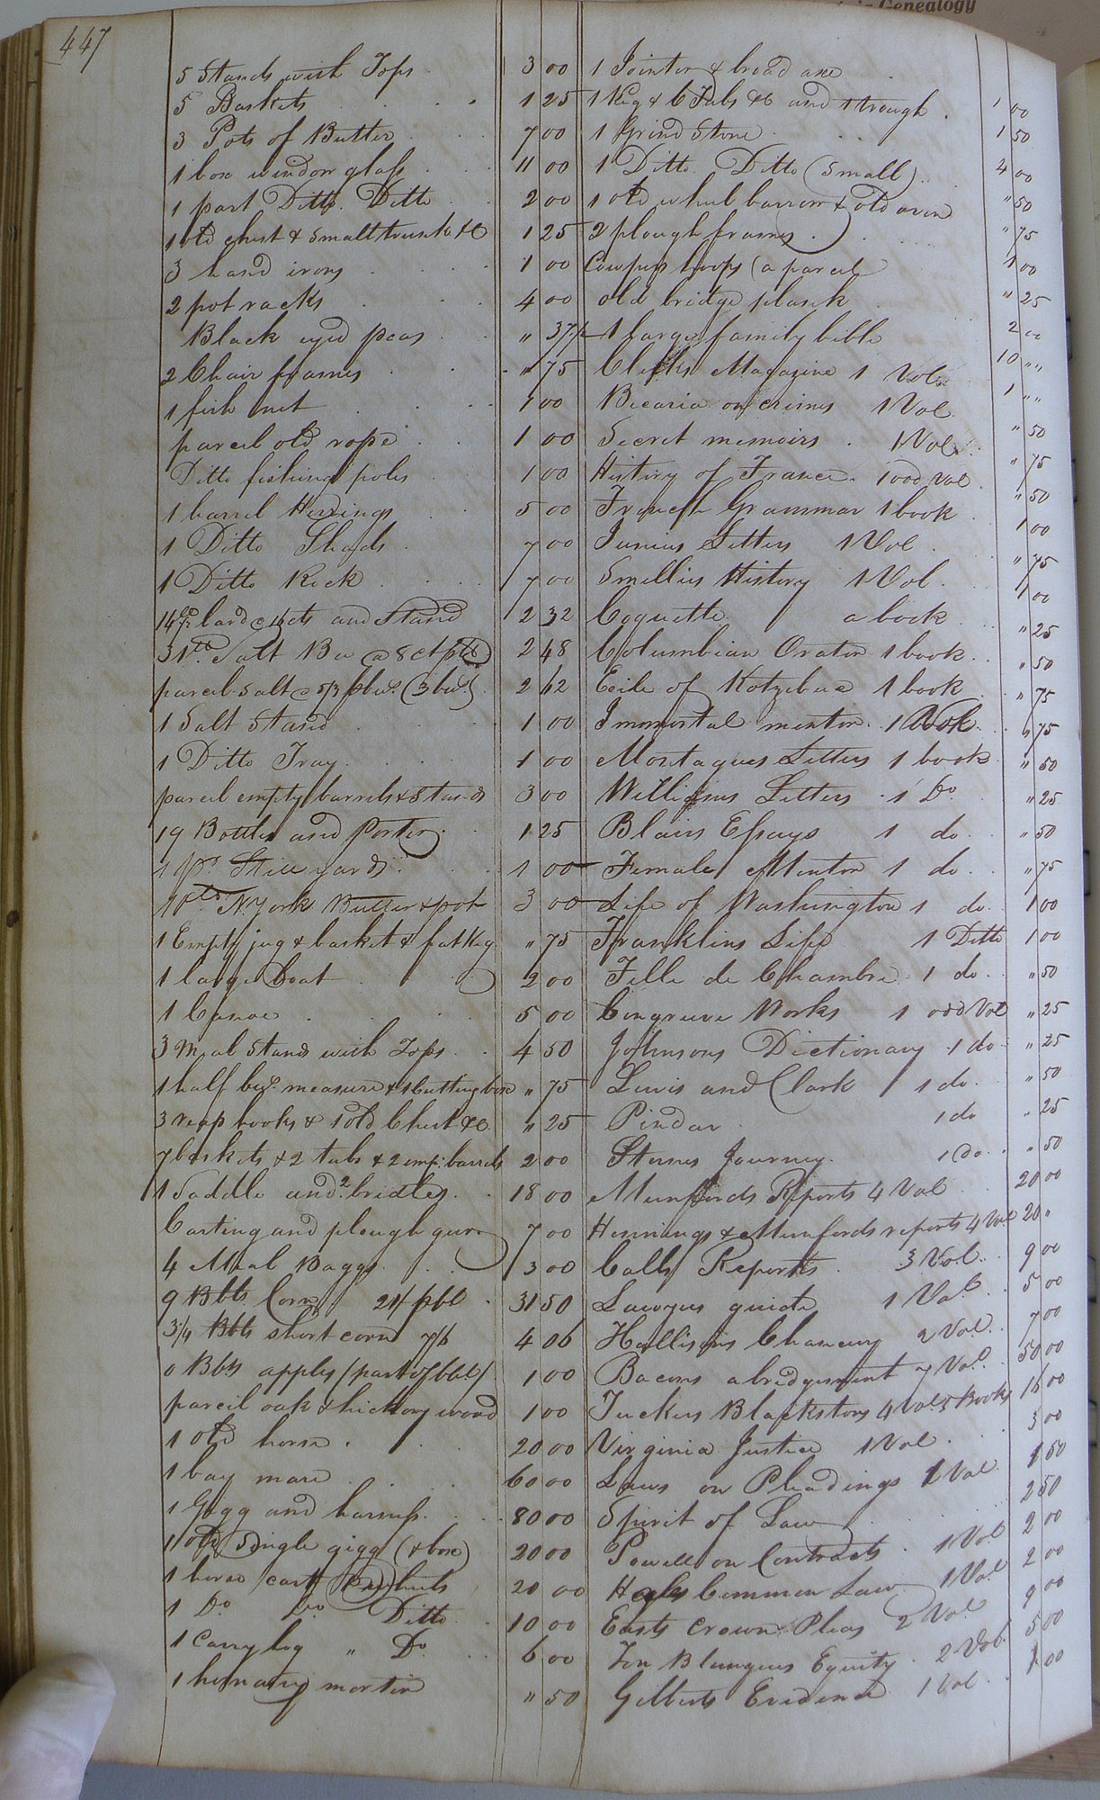 Genealogy
447
5 Stands with Tops 3 00
5 Baskets 1 25
3 Pots of Butter 7 00
1 box window glass 11 00
1 part Ditto Ditto 2 00
1 old chest & Small trunk &c 1 25
3 hand irons 1 00
2 pot racks 4 00
Black eyed peas " 37½
2 Chair frames " 75
1 fish net 1 00
parcel old rope 1 00
Ditto fishing poles 1 00
1 barrel Herrings 5 00
1 Ditto Shads 7 00
1 Ditto Rock 7 00
lard and Stand 2 32
Salt 2 48
parcel Salt 2 62
1 Salt Stand 1 00
1 Ditto Tray 1 00
parcel empty barrels & Stands 3 00
19 Bottles and Porter 1 25
1 pr Stillyards 1 00
N. York Butter & pot 3 00
1 Empty jug & basket & fat Keg " 75
1 large Boat 2 00
1 Canoe 5 00
3 Meal Stands with Tops 4 50
1 half bus. measure & 1 Cutting box " 75
3 reap hooks & 1 old Chest &c " 25
7 baskets & 2 tubs & 2 emp. barrels 2 00
1 Saddle and 2 bridles 18 00
Carting and plough gear 7 00
4 Meal Baggs 3 00
9 Bbls Corn 21/ pbl 31 50
3¼ Bbls short corn 7/6 4 06
0 Bbls apples (part of bbl) 1 00
parcel oak & hickory wood 1 00
1 old horse 20 00
1 bay mare 60 00
1 Gigg and harness 80 00
1 old Single gigg (& box) 20 00
1 horse cart & wheels 20 00
1 Do Do Ditto 10 00
1 carry log " Do 6 00
1 hominy morter " 50
1 Jointer & broad axe
1 Keg & 6 Tubs &c and 1 trough 1 00
1 Grind Stone 1 50
1 Ditto Ditto (Small) 4 00
1 old wheel barrow & old oven " 50
2 plough frames " 75
Coopers hoops (a parcel) 1 00
old bridge plank " 25
1 large family bible 2 00
Magazine 1 Vol 10 ""
Becaria on crimes 1 Vol 1 ""
Secret memoirs 1 Vol " 50
History of France 1 odd Vol " 75
French Grammar 1 book " 50
Junius Letters 1 Vol 1 00
Smellies History 1 Vol " 75
Coquette a book 1 00
Columbian Orator 1 book " 25
Exile of Kotzebue 1 book " 50
Immortal mentor 1 Book " 75
Montagues Letters 1 book " 75
Letters 1 Do " 50
Blairs Essays 1 do " 25
Female Mentor 1 do " 50
Life of Washington 1 do " 75
Franklins Life 1 Ditto 1 00
Fille de Chambre 1 do 1 00
Congreve Works 1 odd Vol " 50
Johnsons Dictionary 1 do " 25
Lewis and Clark 1 do " 25
Pindar 1 do " 50
Sternes Journey 1 Do " 25
Munfords Reports 4 Vol " 50
Hennings & Munfords reports 4 Vol 20 00
Calls Reports 3 Vol 20 "
Lawyers guide 1 Vol 9 00
Chancery 2 Vol 5 00
Bacons abridgement 7 Vol 7 00
Tuckers Blackstons 4 Vol 5 Books 50 00
Virginia Justice 1 Vol 16 00
Laws on Pleadings 1 Vol 3 00
Spirit of Law 1 50
Powell on Contracts 1 Vol 2 50
Hales Common Law 1 Vol 2 00
Easts Crown Pleas 2 Vol 2 00
Fon Blanques Equity 2 Vol 9 00
Gilberts Evidence 1 Vol 5 00
1 00